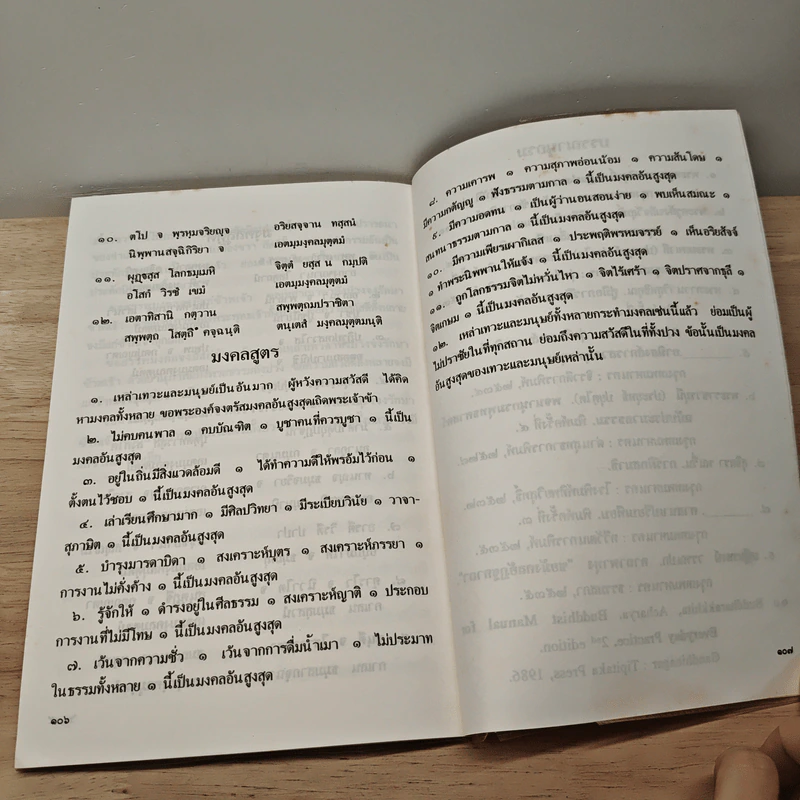 ๑๐. ตโป จ พฺรหฺมจริยญฺจ อริยสจฺจาน ทสฺสนํ
นิพฺพานสจฺฉิกิริยา จ เอตมฺมงฺคลมุตฺตมํ
๑๑. ผุฏฺฐสฺส โลกธมฺเมหิ จิตฺตํ ยสฺส น กมฺปติ
อโสกํ วิรชํ เขมํ เอตมฺมงฺคลมุตฺตมํ
๑๒. เอตาทิสานิ กตฺวาน สพฺพตฺถมปราชิตา
สพฺพตฺถ โสตฺถึ คจฺฉนฺติ ตนฺเตสํ มงฺคลมุตฺตมนฺติ
มงคลสูตร
๑. เหล่าเทวะและมนุษย์เป็นอันมาก ผู้หวังความสวัสดี ได้คิด
หามงคลทั้งหลาย ขอพระองค์จงตรัสมงคลอันสูงสุดเถิดพระเจ้าข้า
๒. ไม่คบคนพาล ๑ คบบัณฑิต ๑ บูชาคนที่ควรบูชา ๑ นี้เป็น
มงคลอันสูงสุด
๓. อยู่ในถิ่นมีสิ่งแวดล้อมดี ๑ ได้ทำความดีให้พรอมไว้ก่อน ๑
ตั้งตนไว้ชอบ ๑ นี้เป็นมงคลอันสูงสุด
๔. เล่าเรียนศึกษามาก ๑ มีศิลปวิทยา ๑ มีระเบียบวินัย ๑ วาจา-
สุภาษิต ๑ นี้เป็นมงคลอันสูงสุด
๕. บำรุงมารดาบิดา ๑ สงเคราะห์บุตร ๑ สงเคราะห์ภรรยา ๑
การงานไม่คั่งค้าง ๑ นี้เป็นมงคลอันสูงสุด
๖. รู้จักให้ ๑ ดำรงอยู่ในศีลธรรม ๑ สงเคราะห์ญาติ ๑ ประกอบ
การงานที่ไม่มีโทษ ๑ นี้เป็นมงคลอันสูงสุด
๗. เว้นจากความชั่ว ๑ เว้นจากการดื่มน้ำเมา ๑ ไม่ประมาท
ในธรรมทั้งหลาย ๑ นี้เป็นมงคลอันสูงสุด
๑๐๖
๘. ความเคารพ ๑ ความสุภาพอ่อนน้อม ๑ ความสันโดษ ๑
มีความกตัญญู ๑ ฟังธรรมตามกาล ๑ นี้เป็นมงคลอันสูงสุด
๙. มีความอดทน ๑ เป็นผู้ว่านอนสอนง่าย ๑ พบเห็นสมณะ ๑
สนทนาธรรมตามกาล ๑ นี้เป็นมงคลอันสูงสุด
๑๐. มีความเพียรเผากิเลส ๑ ประพฤติพรหมจรรย์ ๑ เห็นอริยสัจจ์
๑ ทำพระนิพพานให้แจ้ง ๑ นี้เป็นมงคลอันสูงสุด
๑๑. ถูกโลกธรรมจิตไม่หวั่นไหว ๑ จิตไร้เศร้า ๑ จิตปราศจากธุลี ๑
จิตเกษม ๑ นี้เป็นมงคลอันสูงสุด
๑๒. เหล่าเทวะและมนุษย์ทั้งหลายกระทำมงคลเช่นนี้แล้ว ย่อมเป็นผู้
ไม่ปราชัยในที่ทุกสถาน ย่อมถึงความสวัสดีในที่ทั้งปวง ข้อนั้นเป็นมงคล
อันสูงสุดของเทวะและมนุษย์เหล่านั้น
๑๐๗